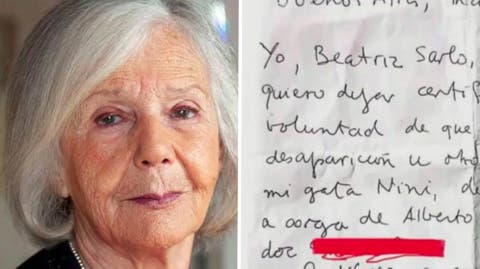 Buenos Aires,
Yo, Beatriz Sarlo,
quiero dejar certif
voluntad de que
desaparición u otro
mi gata Nini, de
a cargo de Alberto
doc